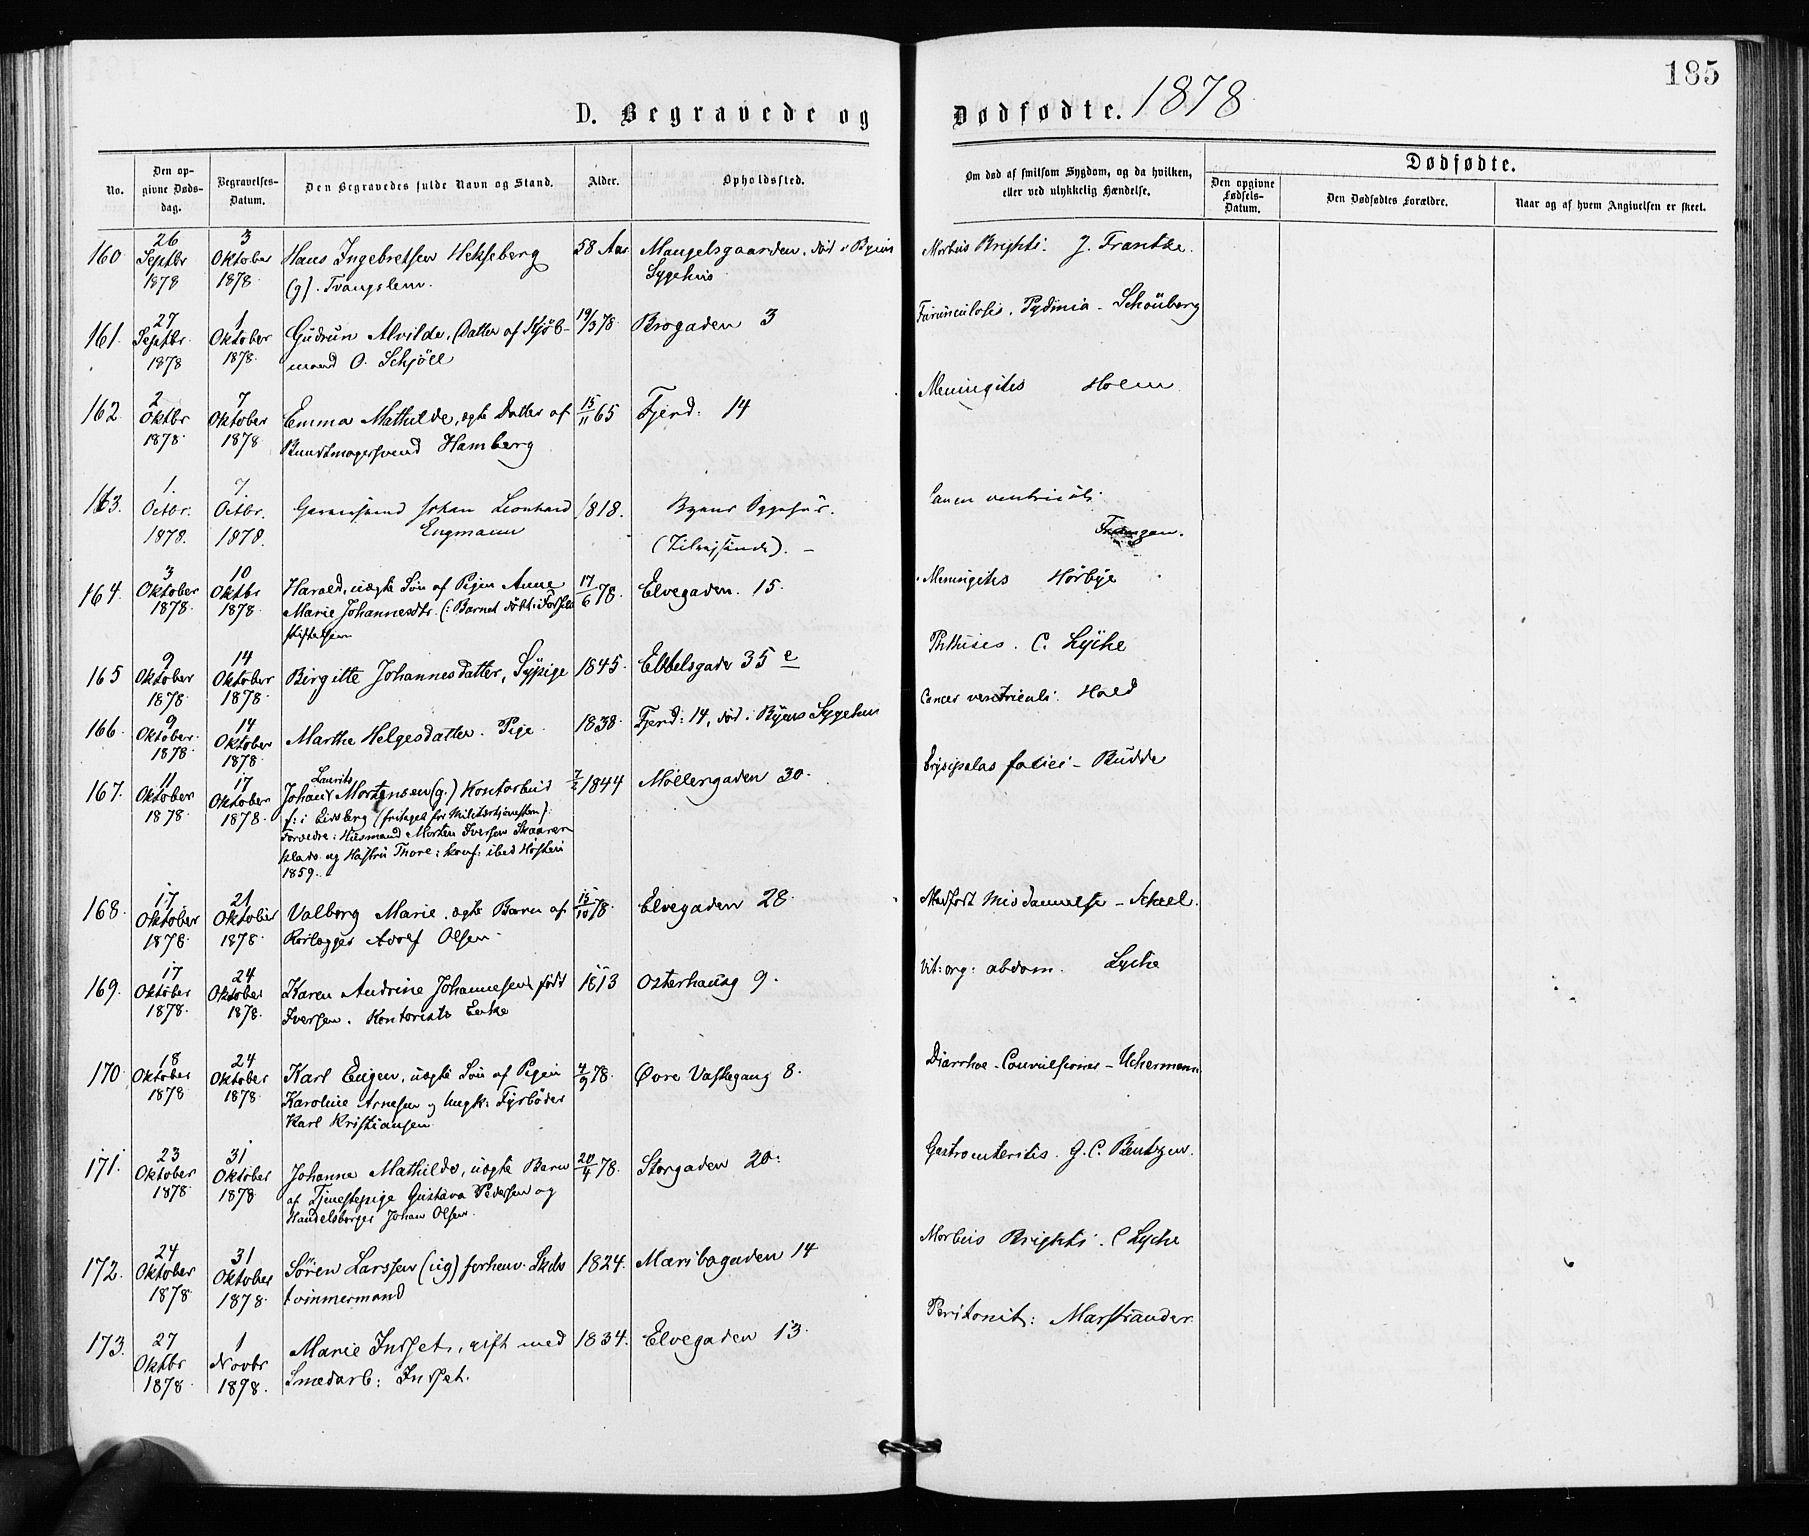 185
D. Begravede og Dødfødte. 1878
No.
Den opgivne Dødsdag.
Begravelses-Datum.
Den Begravedes fulde Navn og Stand.
Alder.
Opholdssted.
Om død af smitsom Sygdom, og da hvilken, eller ved ulykkelig Hændelse.
Dødfødte.
Den opgivne Fødsels-Datum.
Den Dødfødtes Forældre.
Naar og af hvem Angivelsen er skeet.
160 26 Septbr 1878 3 Oktober 1878 Hans Ingebretsen Hekseberg 58 Aar Mangelsgaarden, død i Byens Morbus Brighti: J. Frantze.
(g). Tvangslem. Sygehus
161. 27 Septbr. 1878 1 Oktober 1878. Gudrun Alvilde, (Datter af Kjøb- 19/3 78. Brogaden 3 Furunculosis, Pydmia - Schönberg
mand O. Schjöll
162 2 Oktbr 1878. 7 Oktober 1878 Emma Mathilde, ægte Datter af 15/11 65 Fjerd: 14 Meningitis Holm
Buntmagersvend Hamberg
163. 1. Octbr. 1878. 7. Octbr. 1878. Johan Leonhard 1818. Byens Sygehus. Cancer ventriculi.
Engmann
164. 3 Oktober 1878. 10 Oktbr 1878 Harald, uægte Søn af Pigen Anne 17/6 78. Elvegaden. 15. Meningitis Hörbye
Marie Johannesdtr. (: Barnet døbt i Fødsels
stiftelsen
165 9 Oktober 1878. 14 Oktober 1878. Birgitte Johannesdatter, Sypige 1845. Ebbelsgade 35 e Phthisis. C. Lyche
166. 9 Oktober. 1878. 14 Oktober 1878. Marthe Helgesdatter. Pige. 1838. Fjerd: 14, død i Byens Sygehus Cancer ventriculi: Hald
167. 11 Oktober 1878. 17 Oktober 1878. Johan Laurits Mortensen (g.) Kontorbud 7/2 1844 Møllergaden 30. Erysipelas faciei - Budde
f: i Eidsberg (fritaget for Militærtjenesten).
Forældre: Husmand Morten Iversen Skaaren
plads og Hustru Thore; konf: ibid Høsten
1859.
168. 17. Oktober 1878 21 Oktober 1878. Valborg Marie, ægte Barn af 15/10 78. Elvegaden 28. Medfødt Misdannelse - Scheel.
Rørlægger Adolf Olsen.
169. 17 Oktober 1878. 24 Oktober 1878. Karen Andrine Johannesen født 1813 Osterhaug 9. Vit: org: abdom. Lyche
Iversen. Kontorists Enke
170 18 Oktober 1878 24 Oktober 1878. Karl Eugen, uægte Søn af Pigen 4/9 78. Øvre Vaskegang 8. Diarrhoe - Convulsioner - Uchermann
Karoline Arnesen og Ungk: Fyrbøder
Karl Kristiansen
171. 23 Oktober 1878 31 Oktober 1878 Johanne Mathilde, uægte Barn 20/4 78. Storgaden 20: Gastroenteritis. G. C. Bentzen.
af Tjenestepige Gustava Pedersen og
Handelsborger Johan Olsen.
172. 24 Oktober 1878 31 Oktober 1878. Søren Larssen (ug) forhenv. Skibs 1824. Maribogaden 14 Morbus Brighti. C Lyche
tømmermand
173. 27 Oktbr 1878 1 Novbr 1878. Marie Indset, gift med 1834. Elvegaden 13. Peritonit: Marstrander.
Smedarb: Indset.